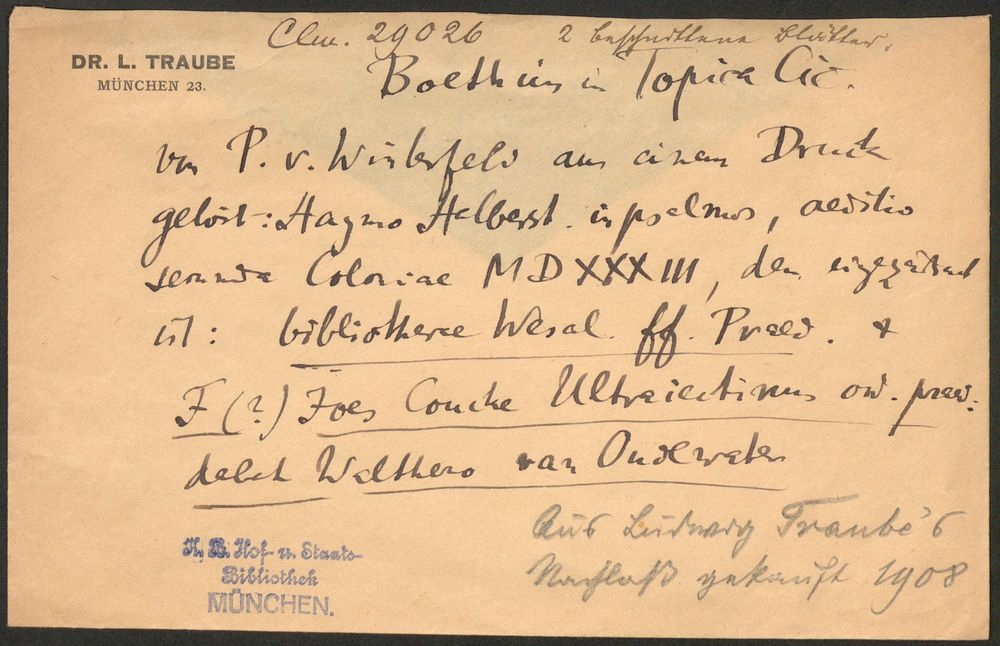 Clm. 29026 2 beschnittene Blätter.
DR. L. TRAUBE
MÜNCHEN 23.
Boethius in Topica Cic.
von P. v. Winterfeld aus einem Druck
gelöst: Haymo Halberst. in psalmos, aeditio
secunda Coloniae MDXXXIII, dem eingezeichnet
ist: bibliothecae Wesal. ff. Praed. &
F (?) Joes Coucke Ultraiectinus ord. praed.
dedit Walthero van Oudewater
Aus Ludwig Traube's
Nachlaß gekauft 1908
K. B. Hof- u. Staats-
Bibliothek
MÜNCHEN.